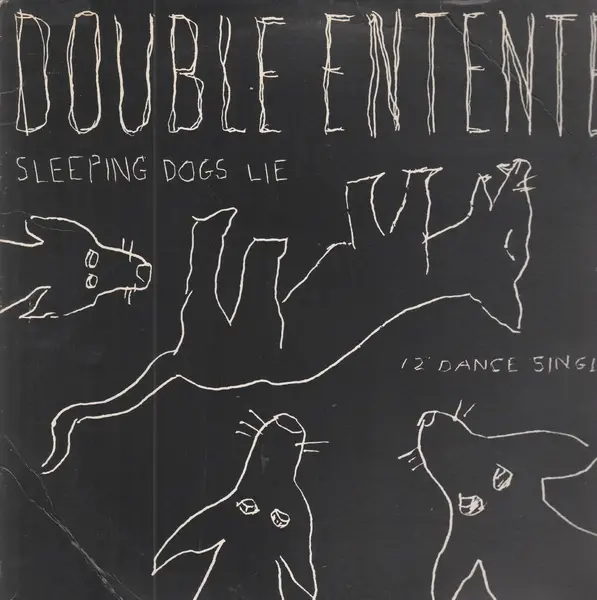 DOUBLE ENTENTE
SLEEPING DOGS LIE
12" DANCE SINGL